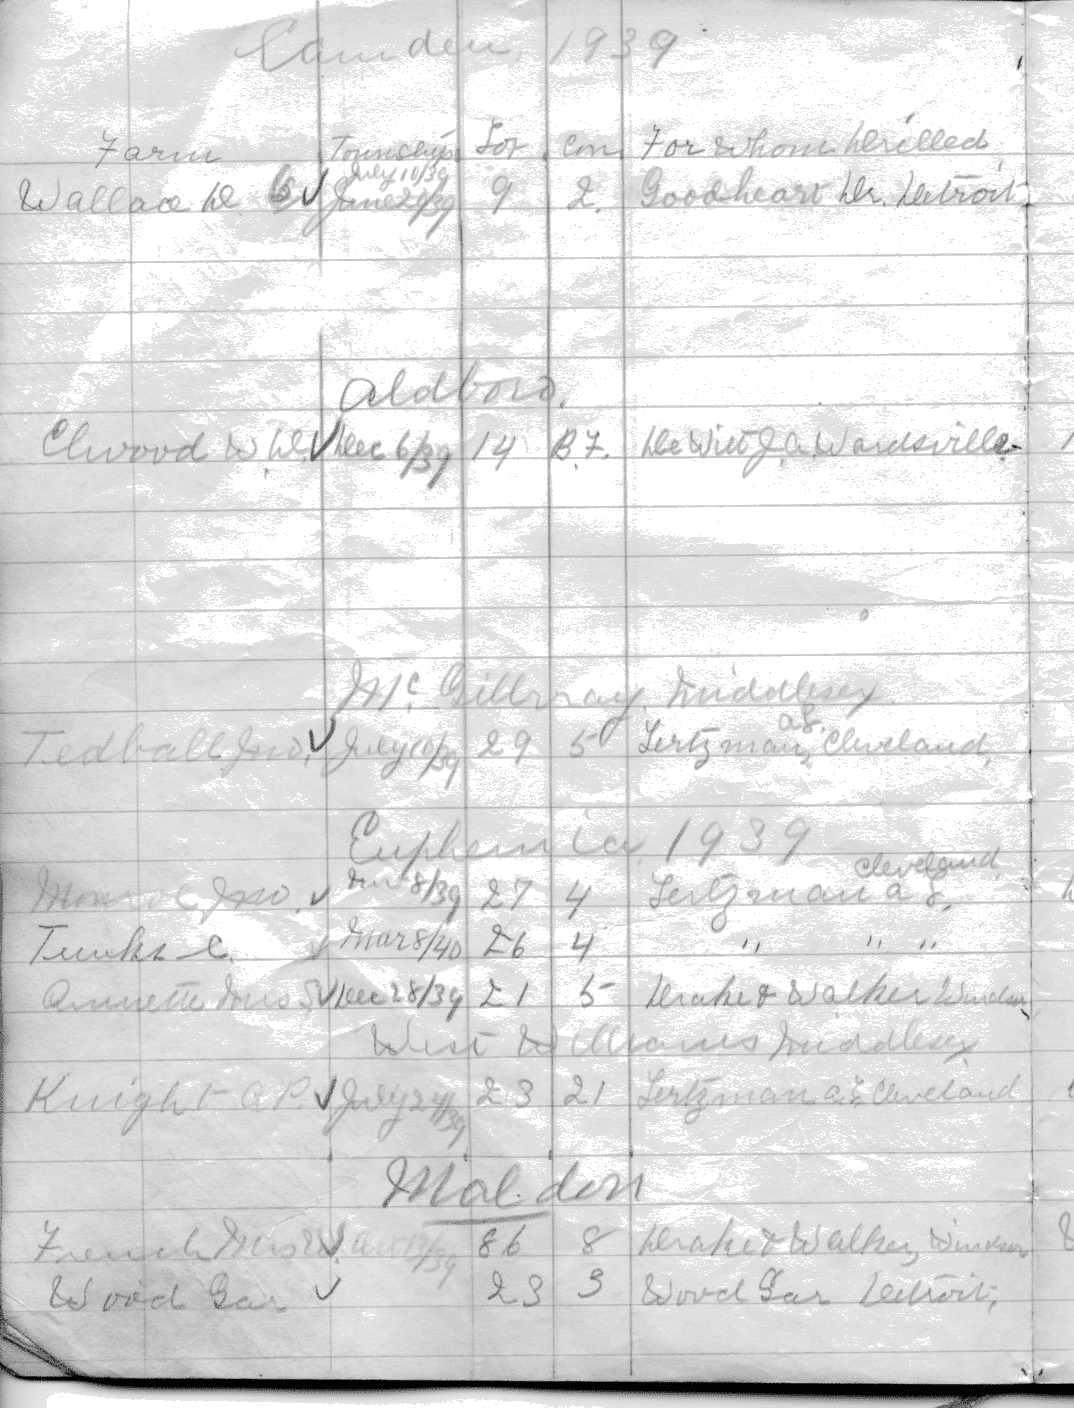 Camden, 1939
Farm Township Lot Con For Whom Drilled
July 10/39
Wallace D. ✓ June 29/39 9 2. Goodheart Dr. Detroit
Aldboro.
Elwood W. D. ✓ Dec 6/39 14 B.F. DeWitt J. A. Wardsville
McGillivray Middlesex
A. J.
Tedball Jno. ✓ July 10/39 29 5 Lertzman, Cleveland,
Euphemia 1939
Cleveland,
Monroe Jno. ✓ 8/39 27 4 Lertzman A. J.
Tunks C. ✓ Mar 8/40 26 4 " " "
Annette Mrs S. ✓ Dec 28/39 21 5 Drake & Walker Windsor,
West Williams Middlesex
Knight A. P. ✓ July 24/39 23 21 Lertzman A. J. Cleveland
Mal. den
French Mrs W. ✓ /39 86 8 Drake & Walker, Windsor
Wood Gar ✓ 23 3 Wood Gar Detroit,